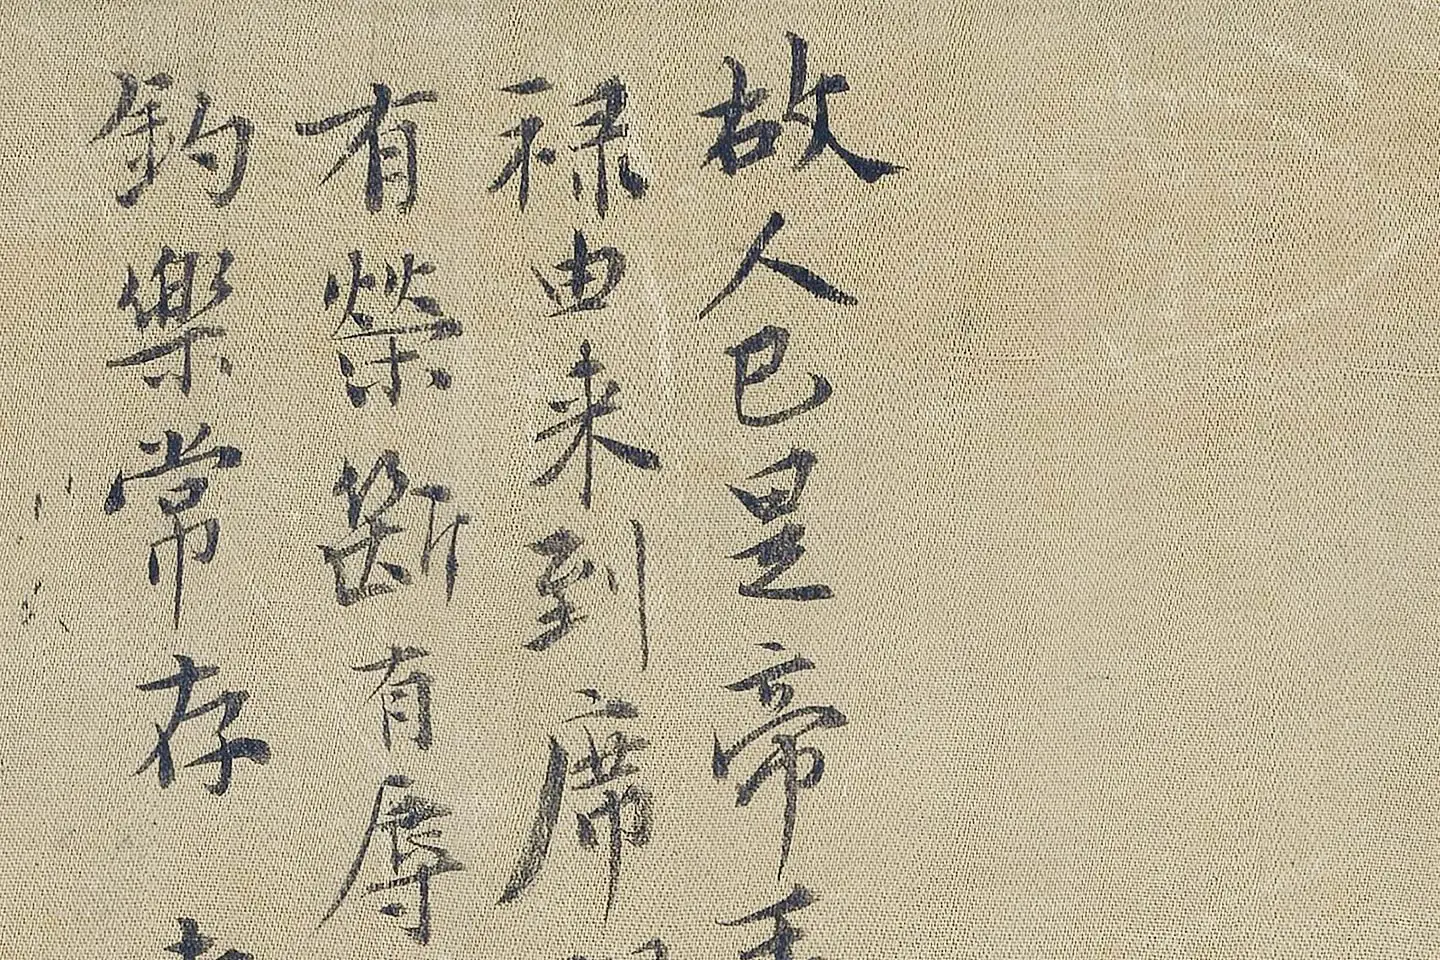 故人已是帝
禄由来到席
有榮斷有辱
釣樂常存